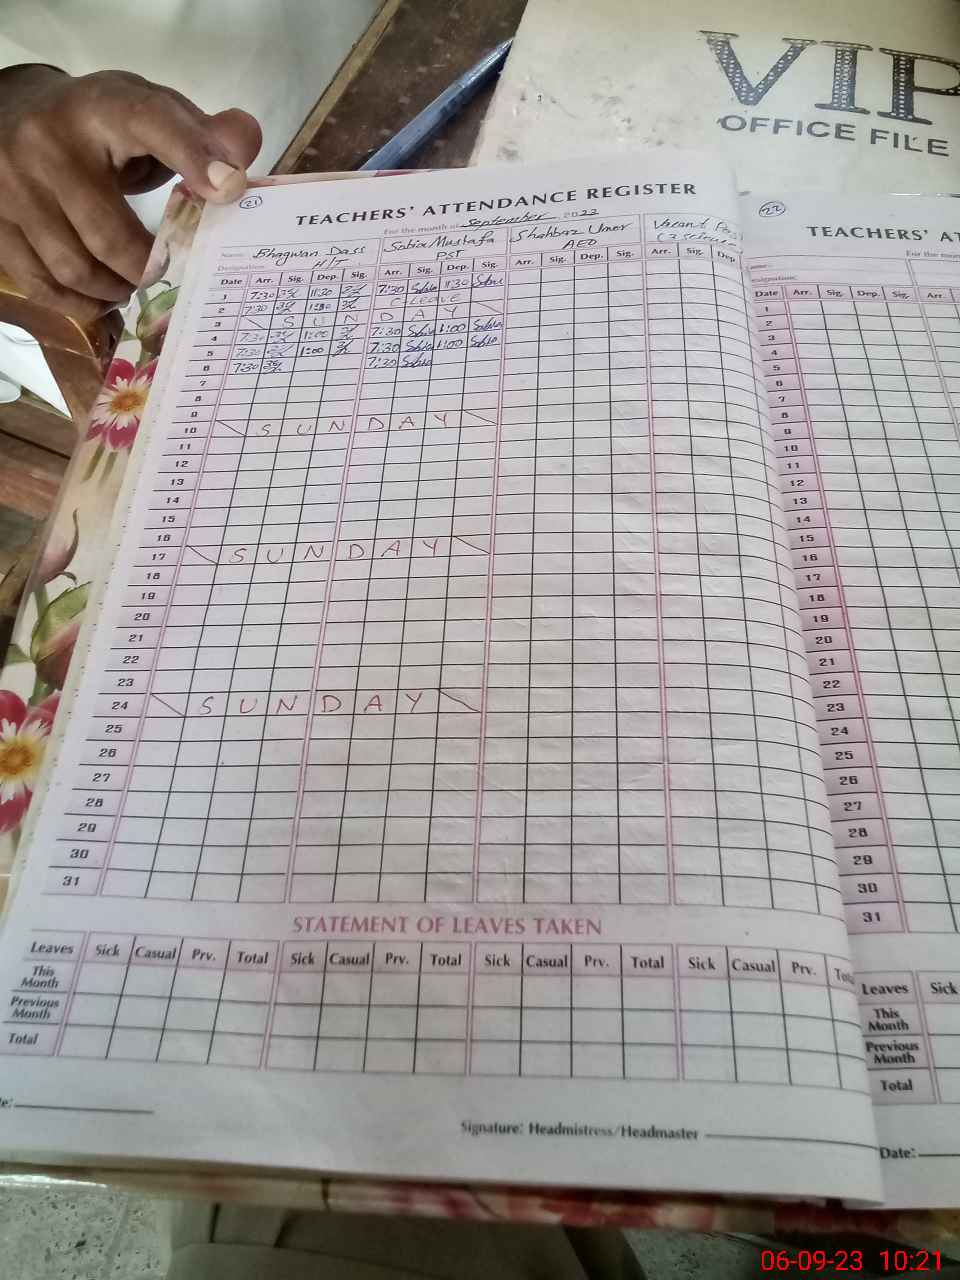 VIP
OFFICE FILE
21
TEACHERS' ATTENDANCE REGISTER
For the month of September 2023
Name: Bhagwan Dass Sobia Mustafa Shahbaz Umer Vacant Post
Designation: H/T PST AEO
Date Arr. Sig. Dep. Sig. Arr. Sig. Dep. Sig. Arr. Sig. Dep. Sig. Arr. Sig. Dep
1 7:30 11:30 7:30 11:30
2 7:30 C-Leave
3 SUNDAY
4 7:30 1:00 7:30 1:00
5 7:30 1:00 7:30 1:00
6 7:30 7:30
7
8
9
10 SUNDAY
11
12
13
14
15
16
17 SUNDAY
18
19
20
21
22
23
24 SUNDAY
25
26
27
28
29
30
31
STATEMENT OF LEAVES TAKEN
Leaves Sick Casual Prv. Total Sick Casual Prv. Total Sick Casual Prv. Total Sick Casual Prv. Tota
This Month
Previous Month
Total
te:
Signature: Headmistress/Headmaster
22
TEACHERS' AT
For the mon
ame:
esignation:
Date Arr. Sig. Dep. Sig. Arr.
1
2
3
4
5
6
7
8
9
10
11
12
13
14
15
16
17
18
19
20
21
22
23
24
25
26
27
28
29
30
31
Leaves Sick
This Month
Previous Month
Total
Date:
06-09-23 10:21